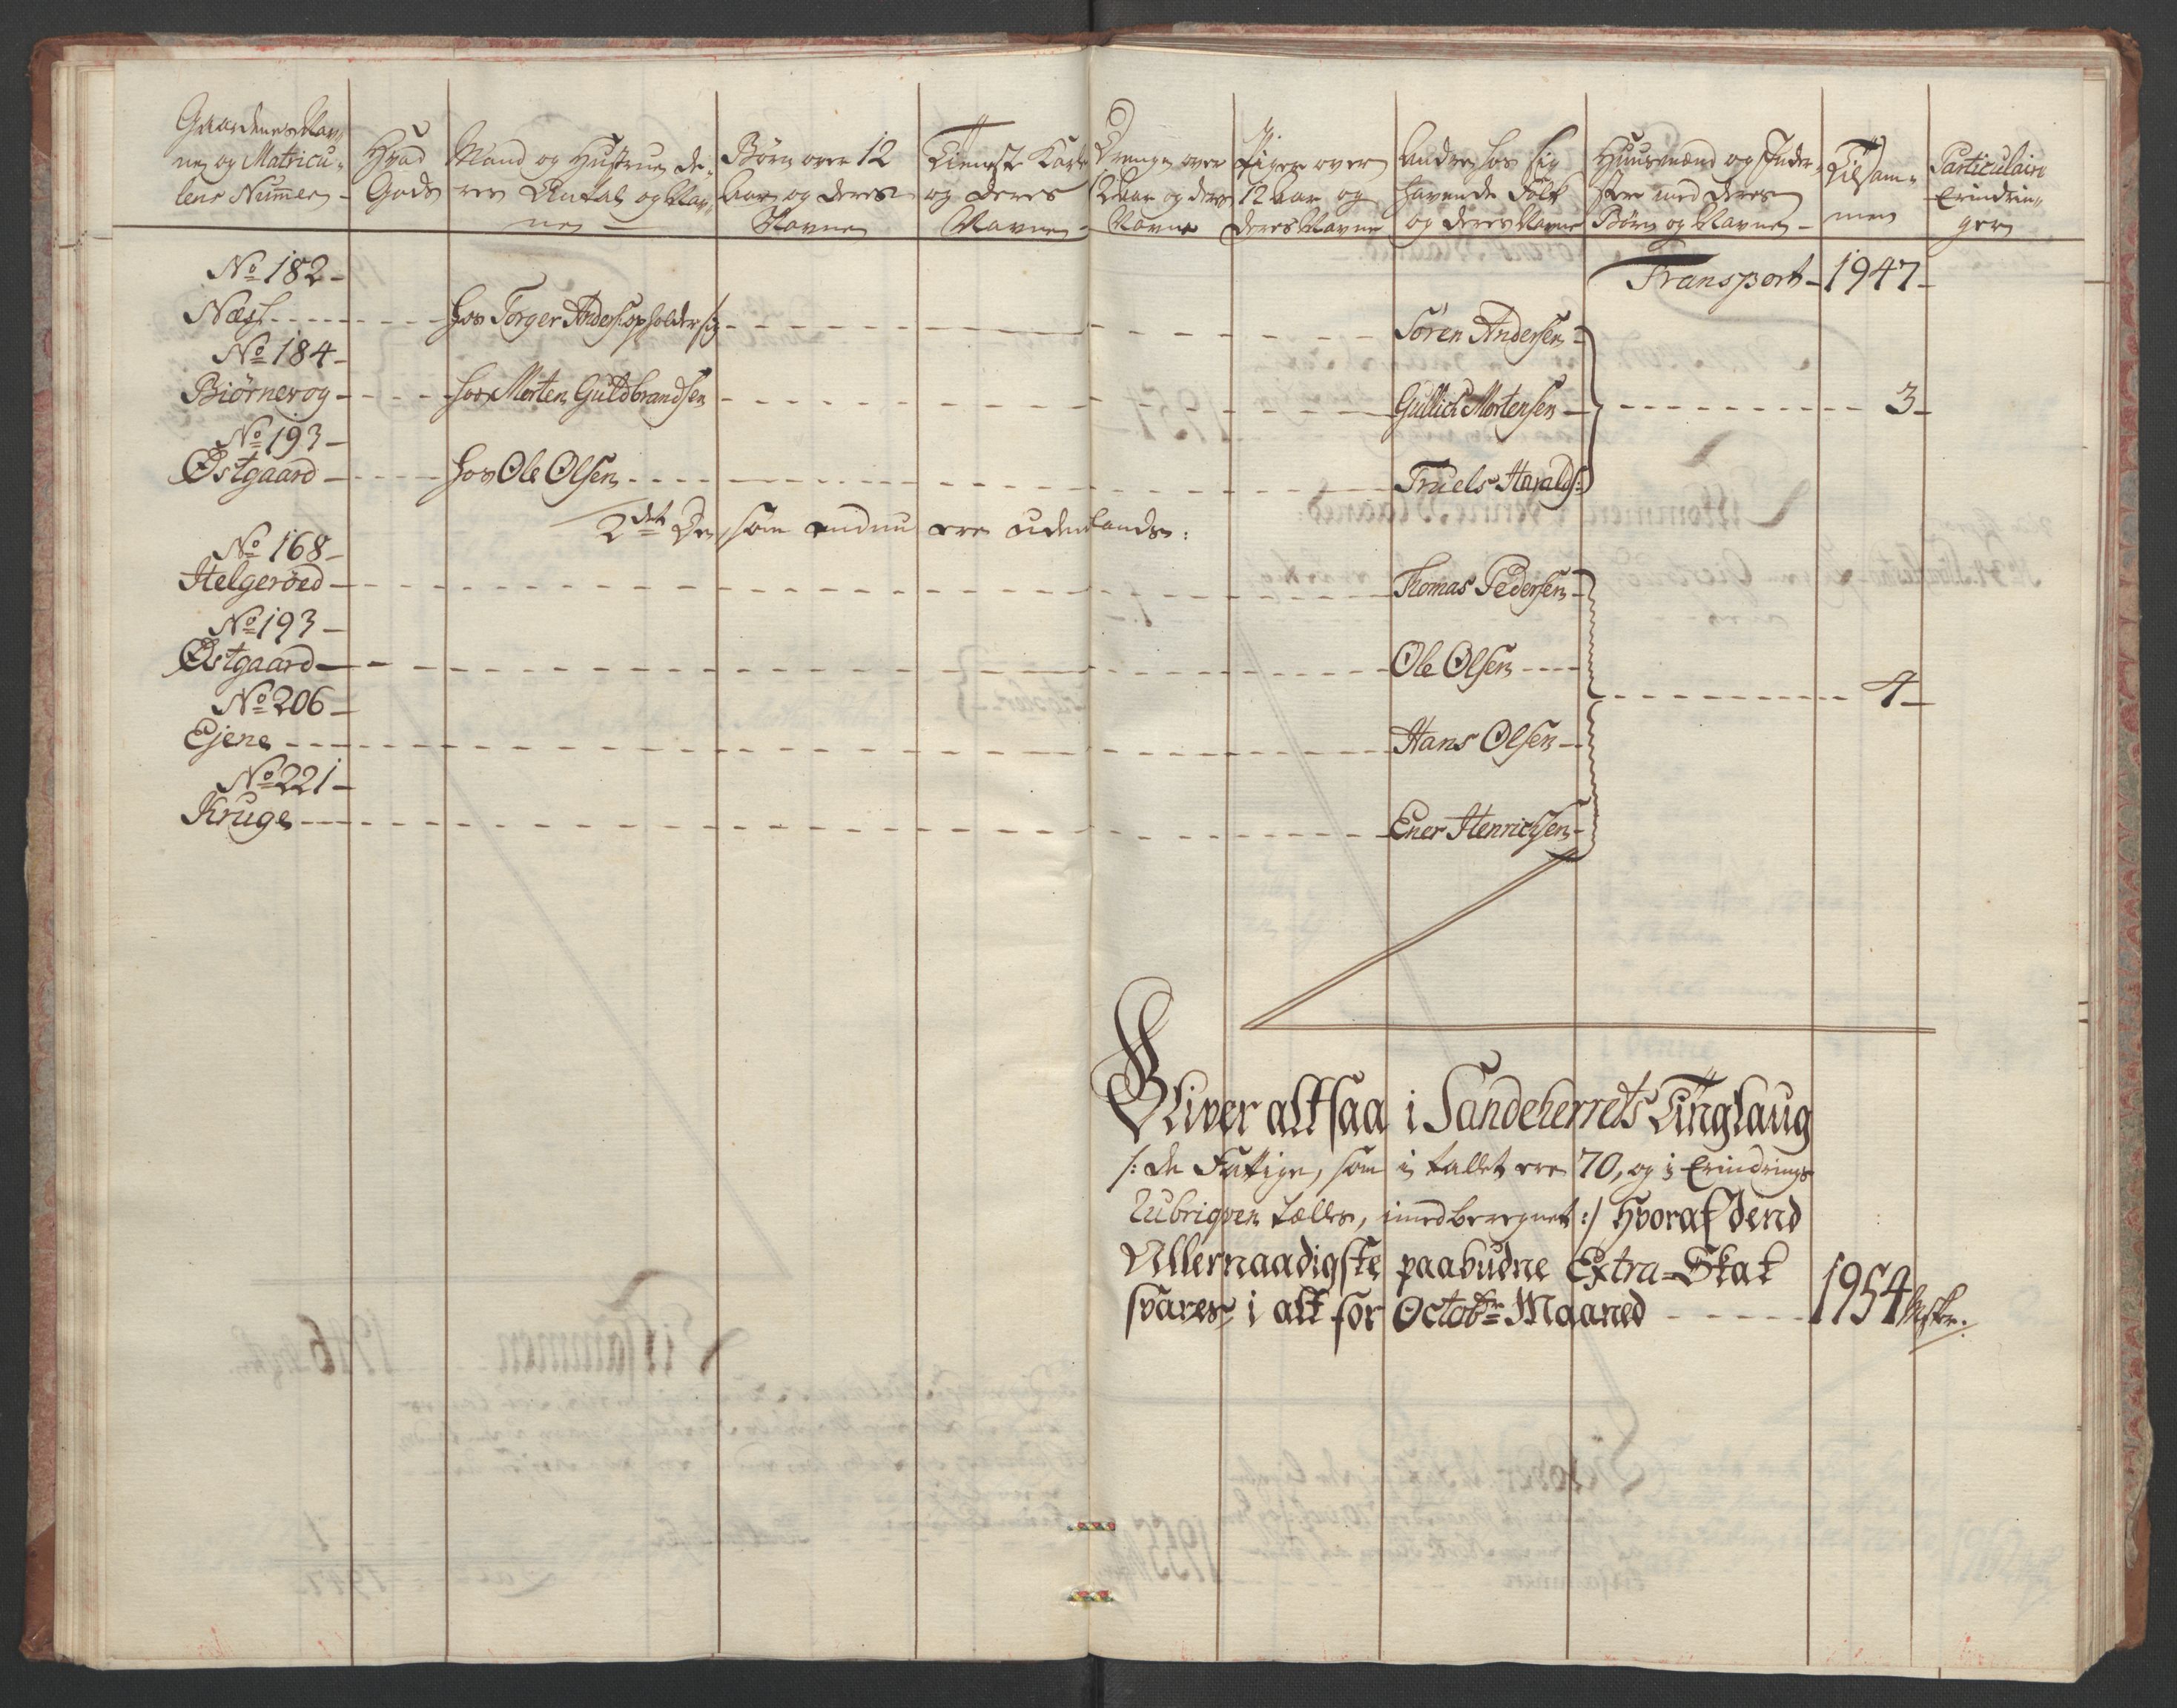 Gaardenes Nav-
ne og Matricu-
lens Nummer -
Hvad
Gods
Mand og Hustrue de-
res Antal og Nav-
ne -
Børn over 12
Aar og deres
Navne
Tieniste Karle
og deres
Navne -
Drenge over
12 Aar og deres
Navne
Piger over
12 Aar og
deres Navne
Andre hos sig
havende Folk
og deres Navne
Huusmænd og Inder-
ster med deres
Børn og Navne -
Tilsam-
men
Particulaire
Erindrin-
ger
No 182 -
Transport - 1947 -
Næss - - - hos Torger Anders: opholder sig - - - Søren Andersen -
No 184 -
Biørnevog - - - hos Morten Guldbrandsen - - - Gullich Mortensen - - - 3 -
No 193 -
Østgaard - - - hos Ole Olsen - - - Truels Haralds:
2det De, som endnu ere udenlands:
No 168 -
Helgerøed - - - Thomas Pedersen -
No 193 -
Østgaard - - - Ole Olsen - - -
4 -
No 206 -
Ejene - - - Hans Olsen -
No 221 -
Kruge - - - Ener Henrichsen -
Bliver altsaa i Sandeherrets Tinglaug
/: de Fattige, som i tallet ere 70, og i Erindrings
Rubriqven tælles, imedberegnet :/ hvoraf dend
Allernaadigste paabudne Extra-Skat
svares, i alt for Octobr Maaned - - - 1954 Mskr.